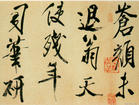 蒼顏
退翁天
使殘年
司筆研